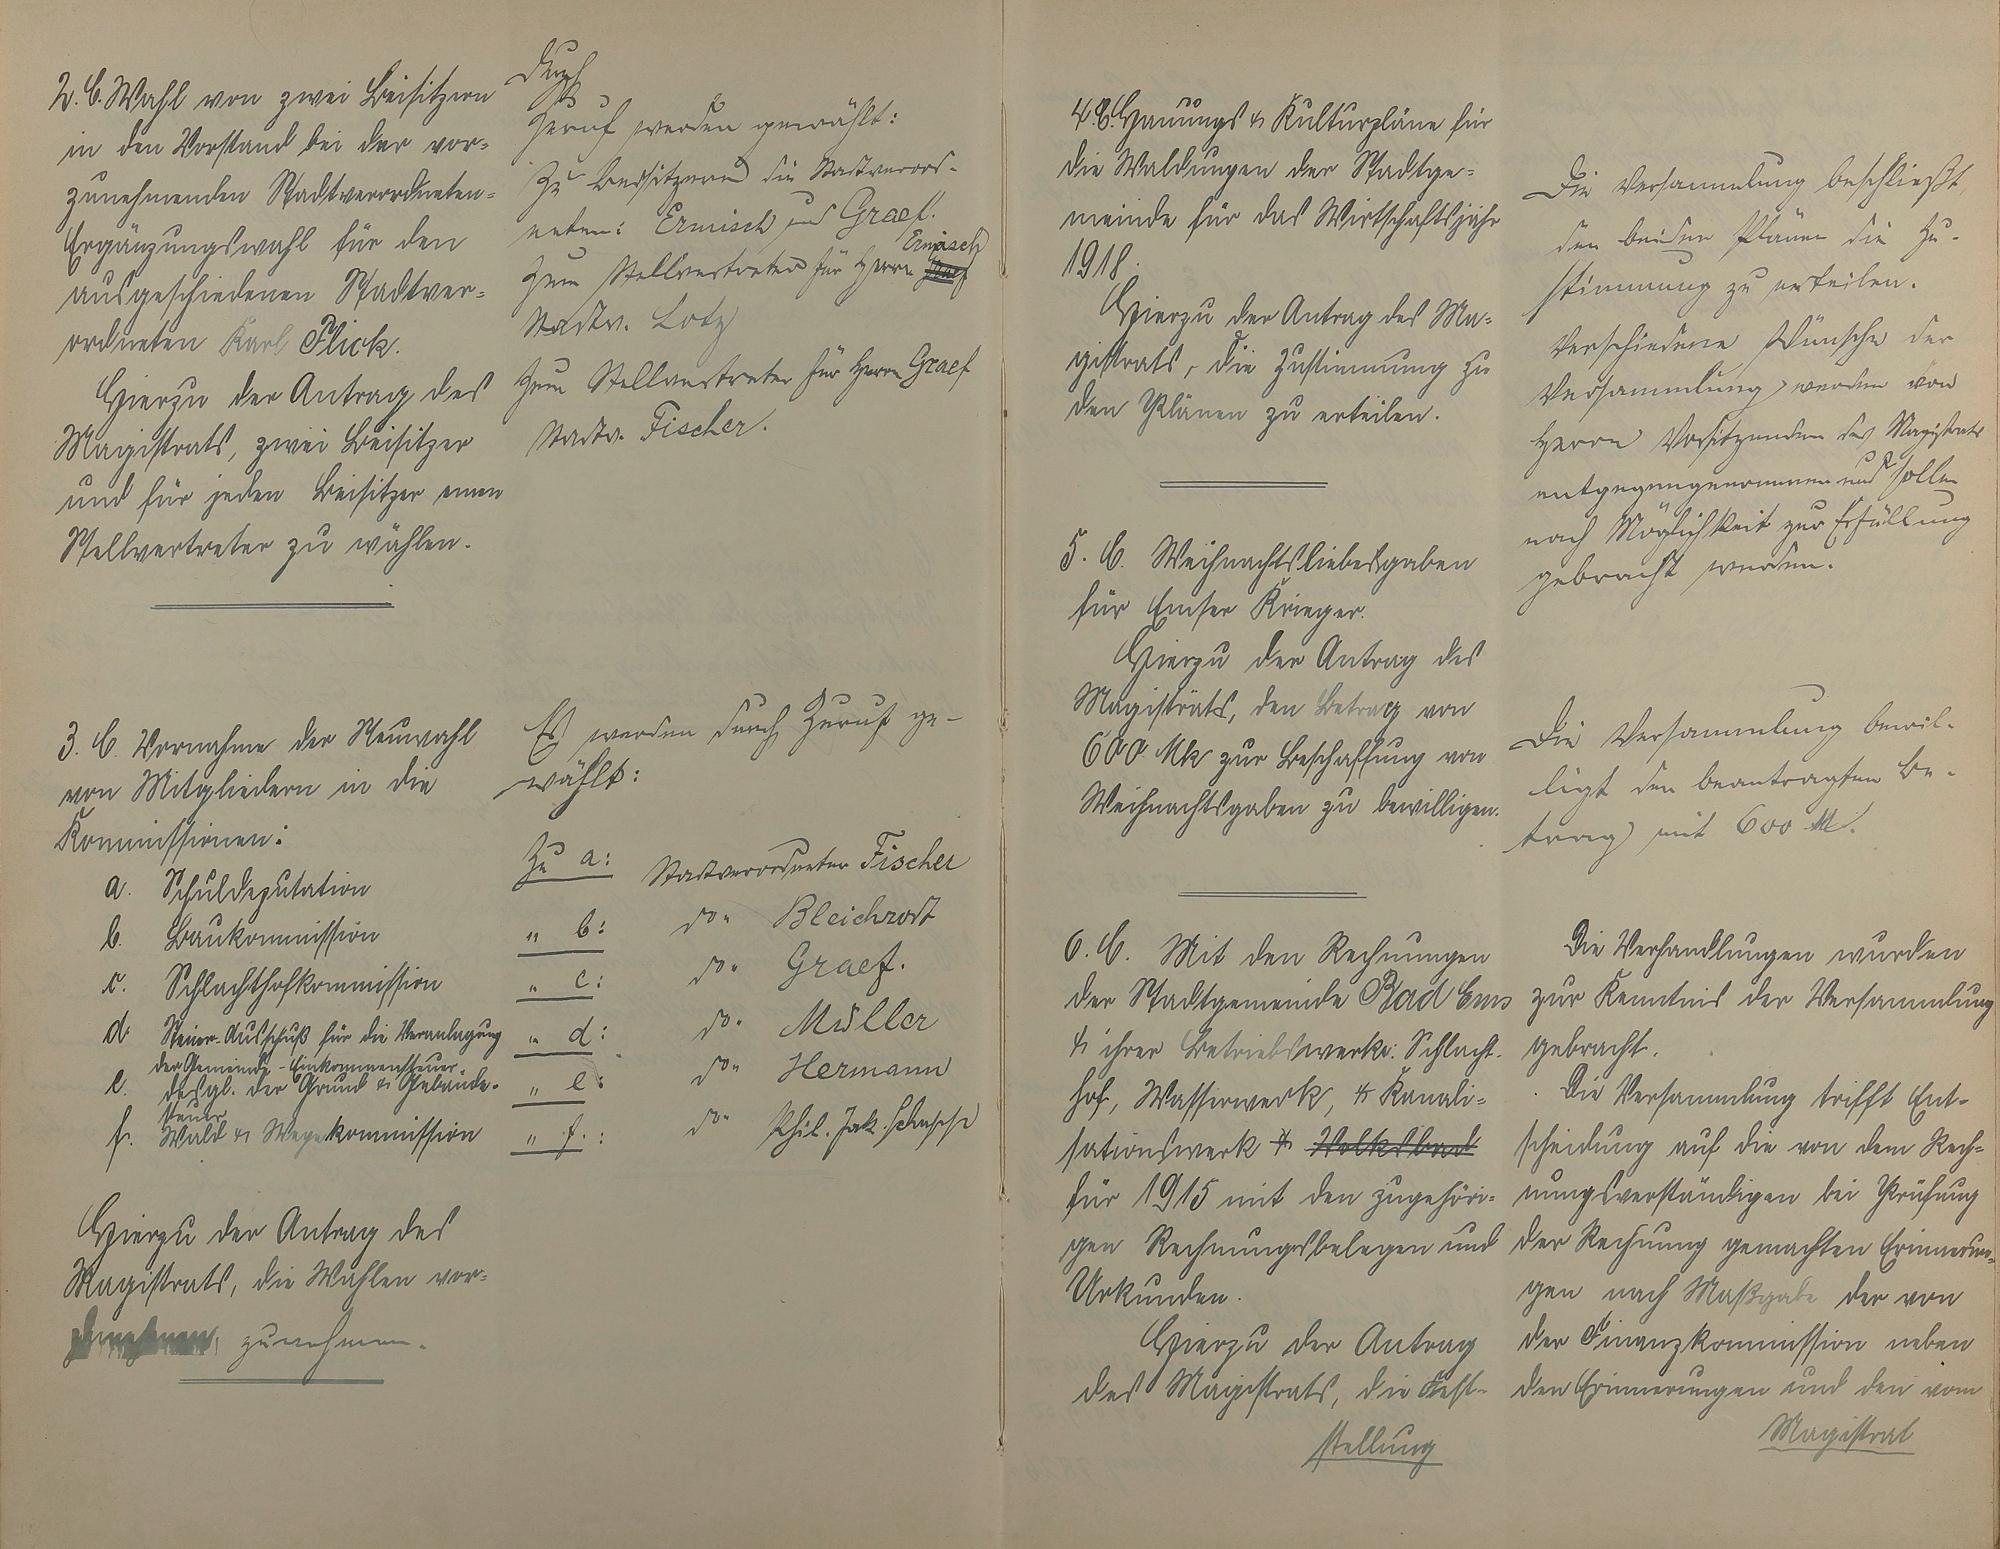 2. C. Wahl von zwei Beisitzern
in den Vorstand bei der vor-
zunehmenden Stadtverordneten-
Ergänzungswahl für den
ausgeschiedenen Stadtver-
ordneten Karl Flick.
Hierzu der Antrag des
Magistrats, zwei Beisitzer
und für jeden Beisitzer einen
Stellvertreter zu wählen.
Durch
Zuruf werden gewählt:
Zu Beisitzern die Stadtverord-
neten: Ermisch und Graef.
Ermisch
Zum Stellvertreter für Herrn
Stadtv. Lotz
Zum Stellvertreter für Herrn Graef
Stadtv. Fischer.
3. C. Vornahme der Neuwahl
von Mitgliedern in die
Kommissionen:
a. Schuldeputation
b. Baukommission
c. Schlachthofkommission
d. Steuer-Ausschuß für die Veranlagung
der Gemeinde-Einkommensteuer
e. desgl. der Grund & Gebäude-
steuer
f. Wald & Wegekommission
Hierzu der Antrag des
Magistrats, die Wahlen vor-
zunehmen.
Es werden durch Zuruf ge-
wählt:
Zu a: Stadtverordneter Fischer
" b: do. Bleichrodt
" c: do. Graef.
" d: do. Müller
" e: do. Hermann
" f.: do. Phil. Jak.
4. C. Hauungs & Kulturpläne für
die Waldungen der Stadtge-
meinde für das Wirtschaftsjahr
1918.
Hierzu der Antrag des Ma-
gistrats, die Zustimmung zu
den Plänen zu erteilen.
Die Versammlung beschließt,
den beiden Plänen die Zu-
stimmung zu erteilen.
Verschiedene Wünsche der
Versammlung werden von
Herrn Vorsitzenden des Magistrats
entgegengenommen und sollen
nach Möglichkeit zur Erfüllung
gebracht werden.
5. C. Weihnachtsliebesgaben
für Emser Krieger.
Hierzu der Antrag des
Magistrats, den Betrag von
600 Mk zur Beschaffung von
Weihnachtsgaben zu bewilligen.
Die Versammlung bewil-
ligt den beantragten Be-
trag mit 600 M.
6. C. Mit den Rechnungen
der Stadtgemeinde Bad Ems
& ihrer Betriebswerke: Schlacht-
hof, Wasserwerk, & Kanali-
sationswerk & Volksbad
für 1915 mit den zugehöri-
gen Rechnungsbelegen und
Urkunden.
Hierzu der Antrag
des Magistrats, die Fest-
stellung
Die Verhandlungen wurden
zur Kenntnis der Versammlung
gebracht.
Die Versammlung trifft Ent-
scheidung auf die von dem Rech-
nungsverständigen bei Prüfung
der Rechnung gemachten Erinnerun-
gen nach Maßgabe der von
der Finanzkommission neben
den Erinnerungen und den vom
Magistrat